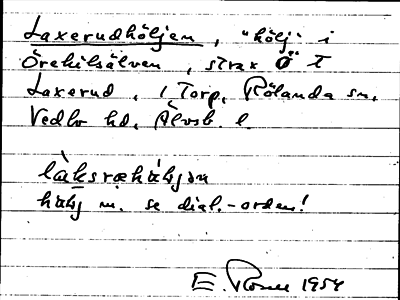 Laxerudhöljen, "hölj" i
Örekilsälven, strax Ö T
Laxerud, 1 Torp, Rölanda sn,
Vedbo hd, Älvsb. l.
hålj m. se dial.-orden!
E. 1954